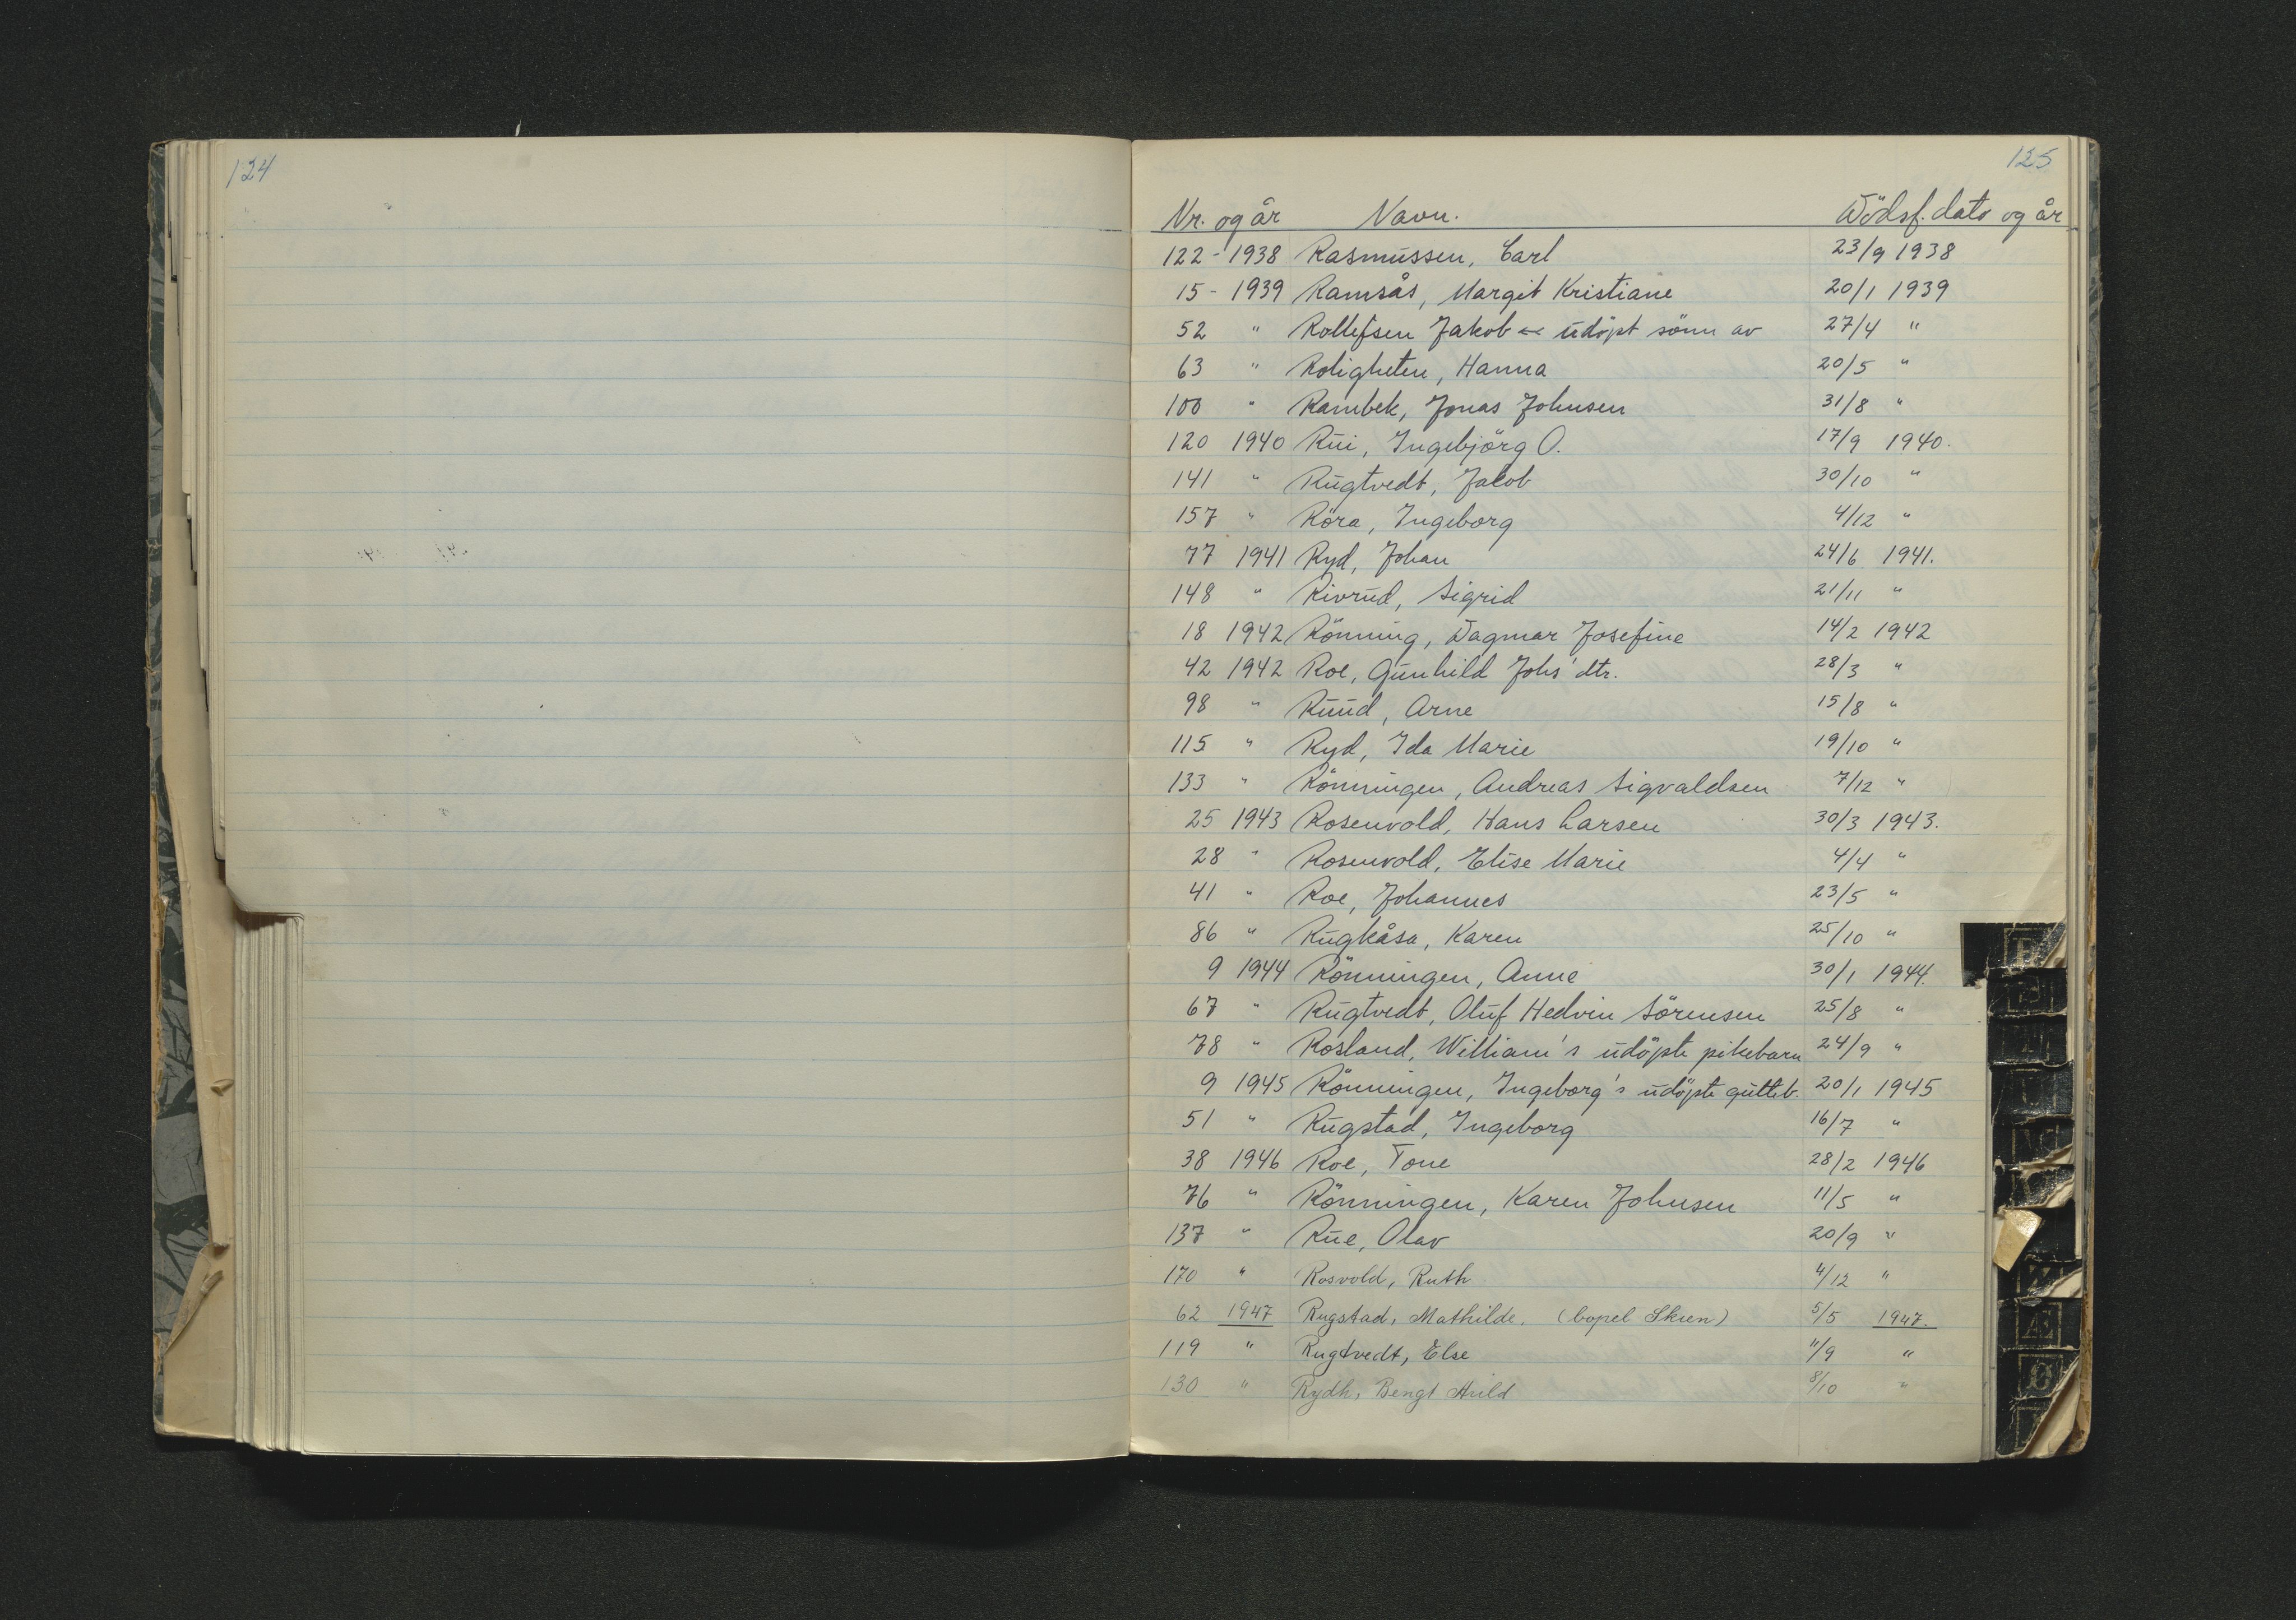 124
125
Nr. og år Navn. Dödsf. dato og år
122 - 1938 Rasmussen, Carl 23/9 1938
15 - 1939 Ramsås, Margit Kristiane 20/1 1939
52 " Rollefsen Jakob udöpt sönn av 27/4 "
63 " Roligheten, Hanna 20/5 "
100 " Rambek, Jonas Johnsen 31/8 "
120 1940 Rui, Ingebjörg O. 17/9 1940.
141 " Rugtvedt, Jakob 30/10 "
157 " Röra, Ingeborg 4/12 "
77 1941 Ryd, Johan 24/6 1941.
148 " Rivrud, Sigrid 21/11 "
18 1942 Rönning, Dagmar Josefine 14/2 1942
42 1942 Roe, Gunhild Johs' dtr. 28/3 "
98 " Ruud, Arne 15/8 "
115 " Ryd, Ida Marie 19/10 "
133 " Rönningen, Andreas Sigvaldsen 7/12 "
25 1943 Rosenvold, Hans Larsen 30/3 1943.
28 " Rosenvold, Elise Marie 4/4 "
41 " Roe, Johannes 23/5 "
86 " Rugkåsa, Karen 25/10 "
9 1944 Rönningen, Anne 30/1 1944.
67 " Rugtvedt, Oluf Hedvin Sörensen 25/8 "
78 " Rosland, William's udöpte pikebarn 24/9 "
9 1945 Rönningen, Ingeborg's udöpte gutteb. 20/1 1945
51 " Rugstad, Ingeborg 16/7 "
38 1946 Roe, Tone 28/2 1946
76 " Rönningen, Karen Johnsen 11/5 "
137 " Rue, Olav 20/9 "
170 " Rosvold, Ruth 4/12 "
62 1947 Rugstad, Mathilde. (bopel Skien) 5/5 1947.
119 " Rugtvedt, Else 11/9 "
130 " Rydh, Bengt 8/10 "
Æ
Ø